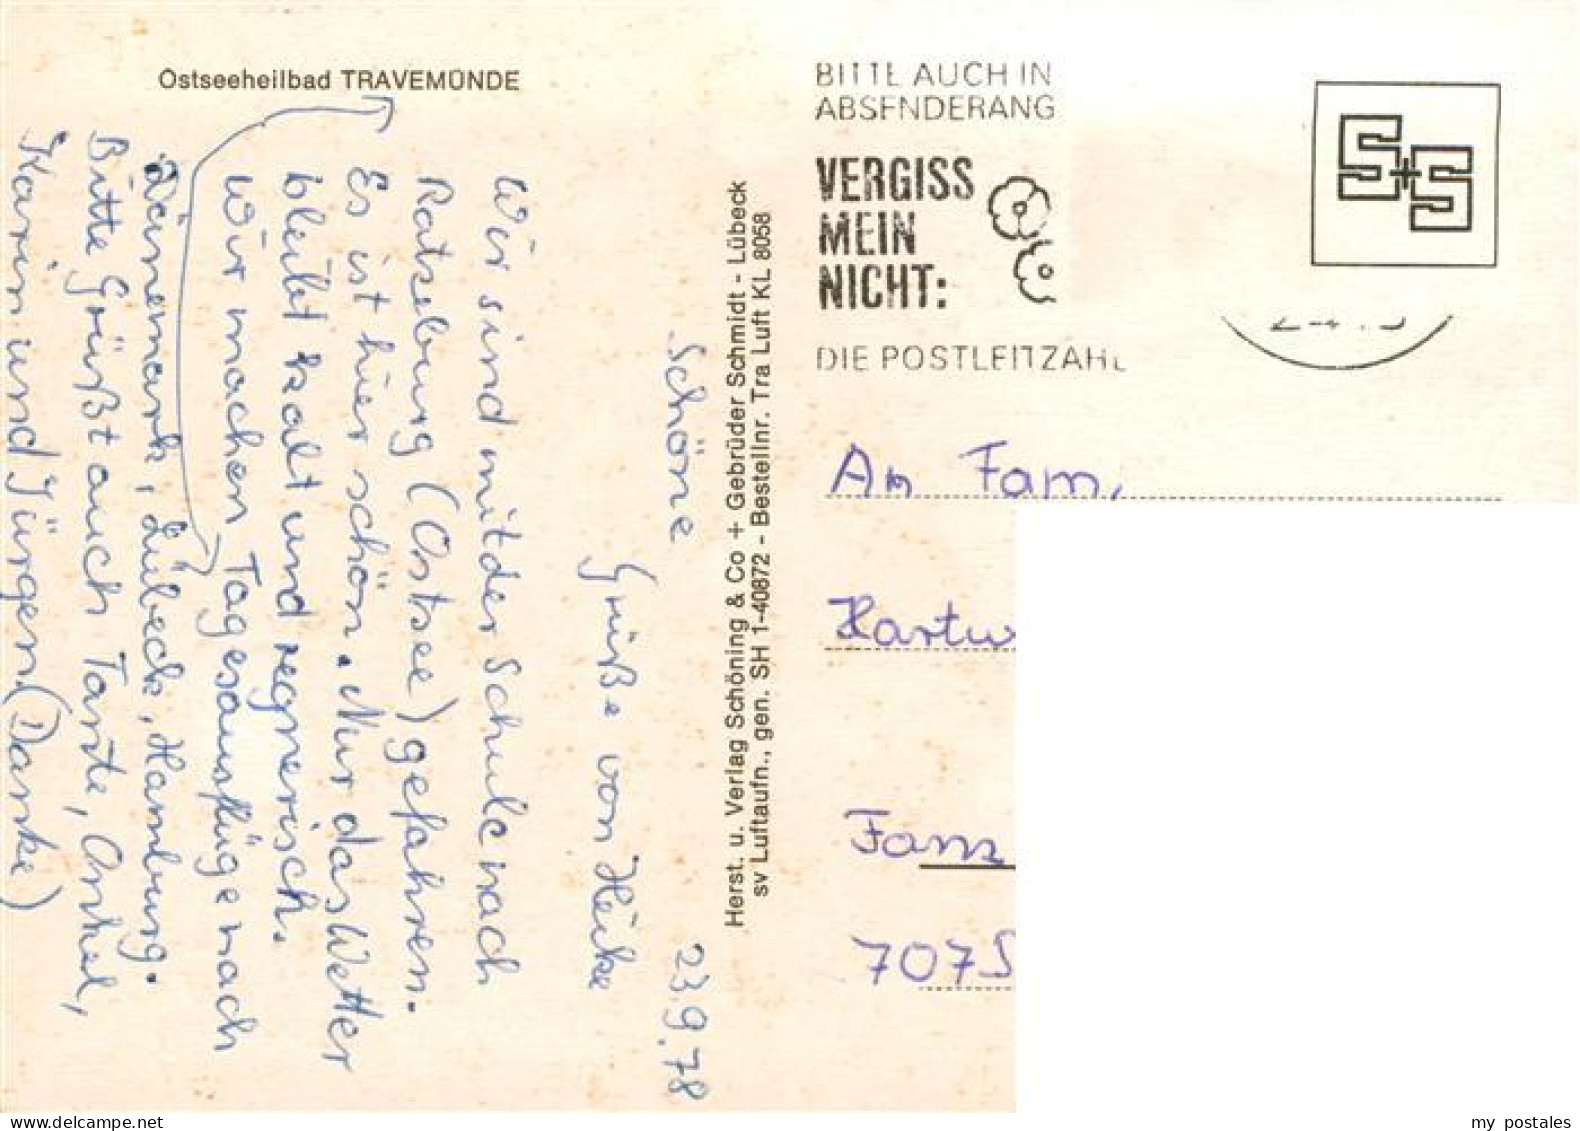 Ostseeheilbad TRAVEMÜNDE
23.9.78
Schöne
Grüße von Heike
Wir sind mit der Schule nach
Ratseburg (Ostsee) gefahren.
Es ist hier schön. Nur das Wetter
bleibt kalt und regnerisch.
Wir machen Tagesausflüge nach
Dänemark, Lübeck, Hamburg.
Bitte Grüßt auch Tante, Onkel,
Karin und Jürgen. (Danke)
Herst. u. Verlag Schöning & Co + Gebrüder Schmidt - Lübeck
sv Luftaufn., gen. SH 1-40872 - Bestellnr. Tra Luft KL 8058
BITTE AUCH IN
ABSENDERANG
VERGISS
MEIN
NICHT:
DIE POSTLEITZAHL
S+S
An Fam.
Hartw
Fam
707
my postales